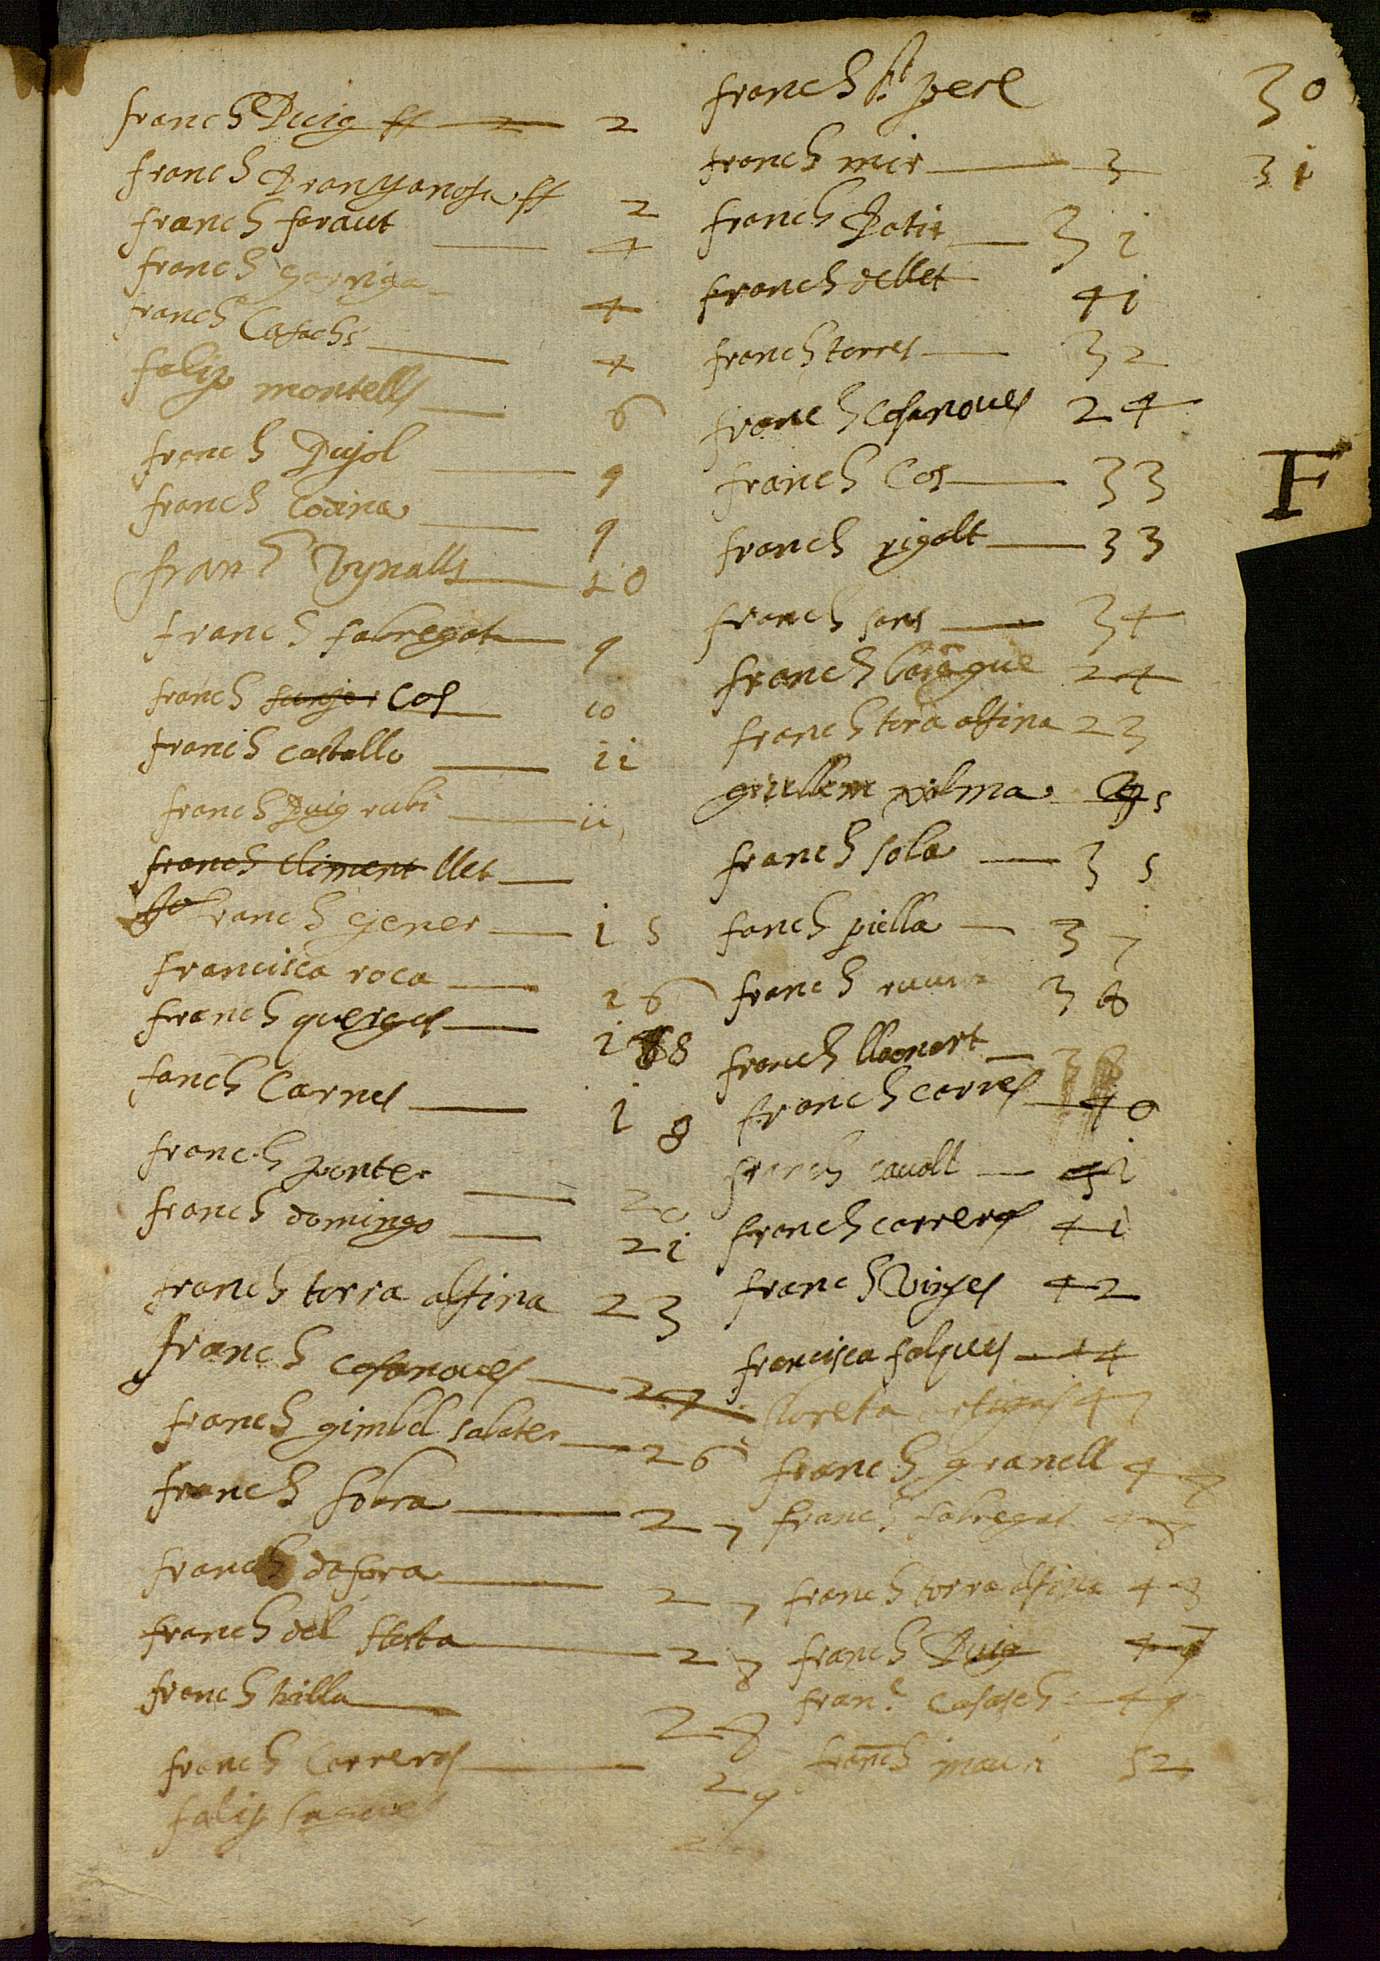 franch Puig ff 2
franch Pranyanosa ff 2
franch feraut 4
franch garriga 4
franch Casachs 4
falip montells 6
franch Pujol 9
franch codina 9
franch Vynalls 10
franch fabregat 9
franch Cos 10
franch castello 11
franch Puig rubi 11
franch Climent llet
franch gener 15
francisca roca 16
franch querges 18
fanch Carnes 18
franch ponter 20
franch domingo 21
franch torra alsina 23
franch casanoves 24
franch gimbel sabater 26
franch sobra 27
franch dafora 27
franch del 28
franch villa 28
franch Carreras 29
falip
franch pere 30
franch mir 3 31
franch Patit 31
franch dellet 41
franch torres 32
franch Casanoves 24
franch Cos 33
franch rigalt 33
F
franch sans 34
franch 24
franch tora alsina 23
guillem palma
franch sola 35
fanch piella 37
franch 38
franch lleonart
franch carres 40
franch cavalt 41
franch carreras 41
franch Vinyes 42
francisca salques 44
floreta artigas 47
franch granell 47
franch fabregat 48
franch torra alsina 48
franch Puig 49
franch Casasch 49
franch macia 52